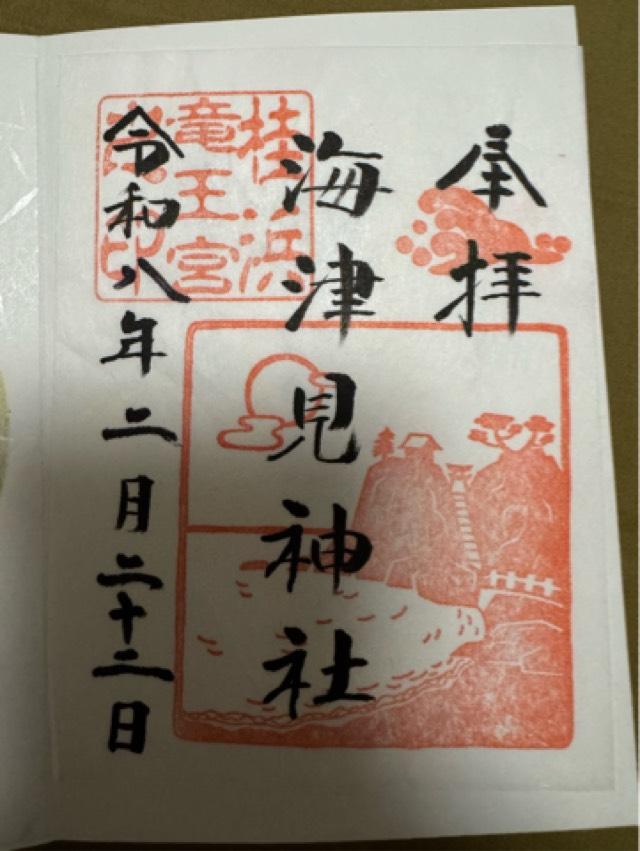 奉拝
海津見神社
令和八年二月二十二日
桂浜
竜王宮